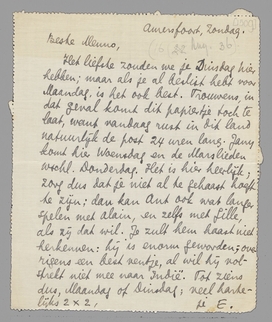 Amersfoort, Zondag.
Beste Menno,
(6 22 Aug. '36)
Het liefste zouden we je Dinsdag hier
hebben; maar als je al beslist hebt voor
Maandag, is het ook best. Trouwens, in
dat geval komt dit papiertje toch te
laat, want vandaag rust in dit land
natuurlijk de post 24 uren lang. Jany
komt hier Woensdag en de Marslieden
wschl. Donderdag. Het is hier heerlijk;
zorg dus dat je niet al te gehaast hoeft
te zijn; dan kan Ant ook wat langer
spelen met Alain, en zelfs met Gille,
als zij dat wil. Je zult hem haast niet
herkennen: hij is enorm geworden; over-
rigens een best ventje, al wil hij vol-
strekt niet mee naar Indië. Tot ziens
dus, Maandag of Dinsdag; veel harte-
lijks 2 x 2,
je E.